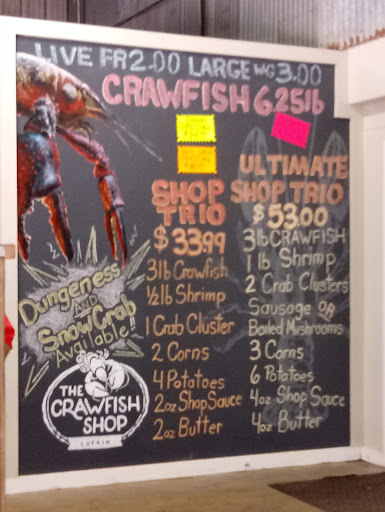 LIVE FR 2.00 LARGE WG 3.00
CRAWFISH 6.25 lb
SHOP
TRIO
$33.99
3lb Crawfish
½lb Shrimp
1 Crab Cluster
2 Corns
4 Potatoes
2oz Shop Sauce
2oz Butter
ULTIMATE
SHOP TRIO
$53.00
3lb CRAWFISH
1 lb Shrimp
2 Crab Clusters
Sausage OR
Boiled Mushrooms
3 Corns
6 Potatoes
4oz Shop Sauce
4oz Butter
Dungeness
AND
Snow Crab
Available!
THE
CRAWFISH
SHOP
LUFKIN